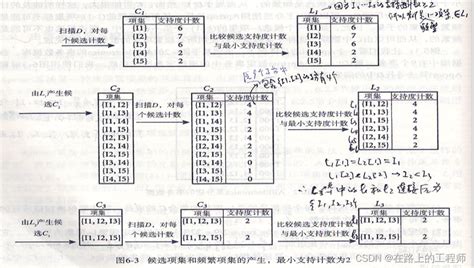 C₁
项集 支持度计数
{I1} 6
{I2} 7
{I3} 6
{I4} 2
{I5} 2
扫描D，对每
个候选计数
比较候选支持度计数
与最小支持度计数
L₁
项集 支持度计数
{I1} 6
{I2} 7
{I3} 6
{I4} 2
{I5} 2
由L₁产生候
选C₂
C₂
项集
{I1, I2}
{I1, I3}
{I1, I4}
{I1, I5}
{I2, I3}
{I2, I4}
{I2, I5}
{I3, I4}
{I3, I5}
{I4, I5}
扫描D，对每
个候选计数
C₂
项集 支持度计数
{I1, I2} 4
{I1, I3} 4
{I1, I4} 1
{I1, I5} 2
{I2, I3} 4
{I2, I4} 2
{I2, I5} 2
{I3, I4} 0
{I3, I5} 1
{I4, I5} 0
比较候选支持度计数
与最小支持度计数
L₂
项集 支持度计数
{I1, I2} 4
{I1, I3} 4
{I1, I5} 2
{I2, I3} 4
{I2, I4} 2
{I2, I5} 2
由L₂产生候
选C₃
C₃
项集
{I1, I2, I3}
{I1, I2, I5}
扫描D，对每
个候选计数
C₃
项集 支持度计数
{I1, I2, I3} 2
{I1, I2, I5} 2
比较候选支持度计数
与最小支持度计数
L₃
项集 支持度计数
{I1, I2, I3} 2
{I1, I2, I5} 2
图6-3 候选项集和频繁项集的产生，最小支持计数为2
CSDN @在路上的工程师